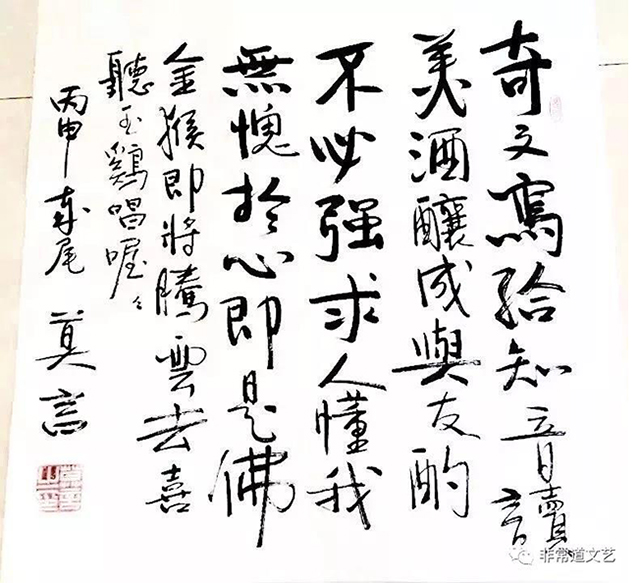 奇文寫給知音讀
美酒釀成與友酌
不必强求人懂我
無愧於心即是佛
金猴即將騰雲去喜
聽玉鷄唱喔々
丙申年尾 莫言
非常道文艺